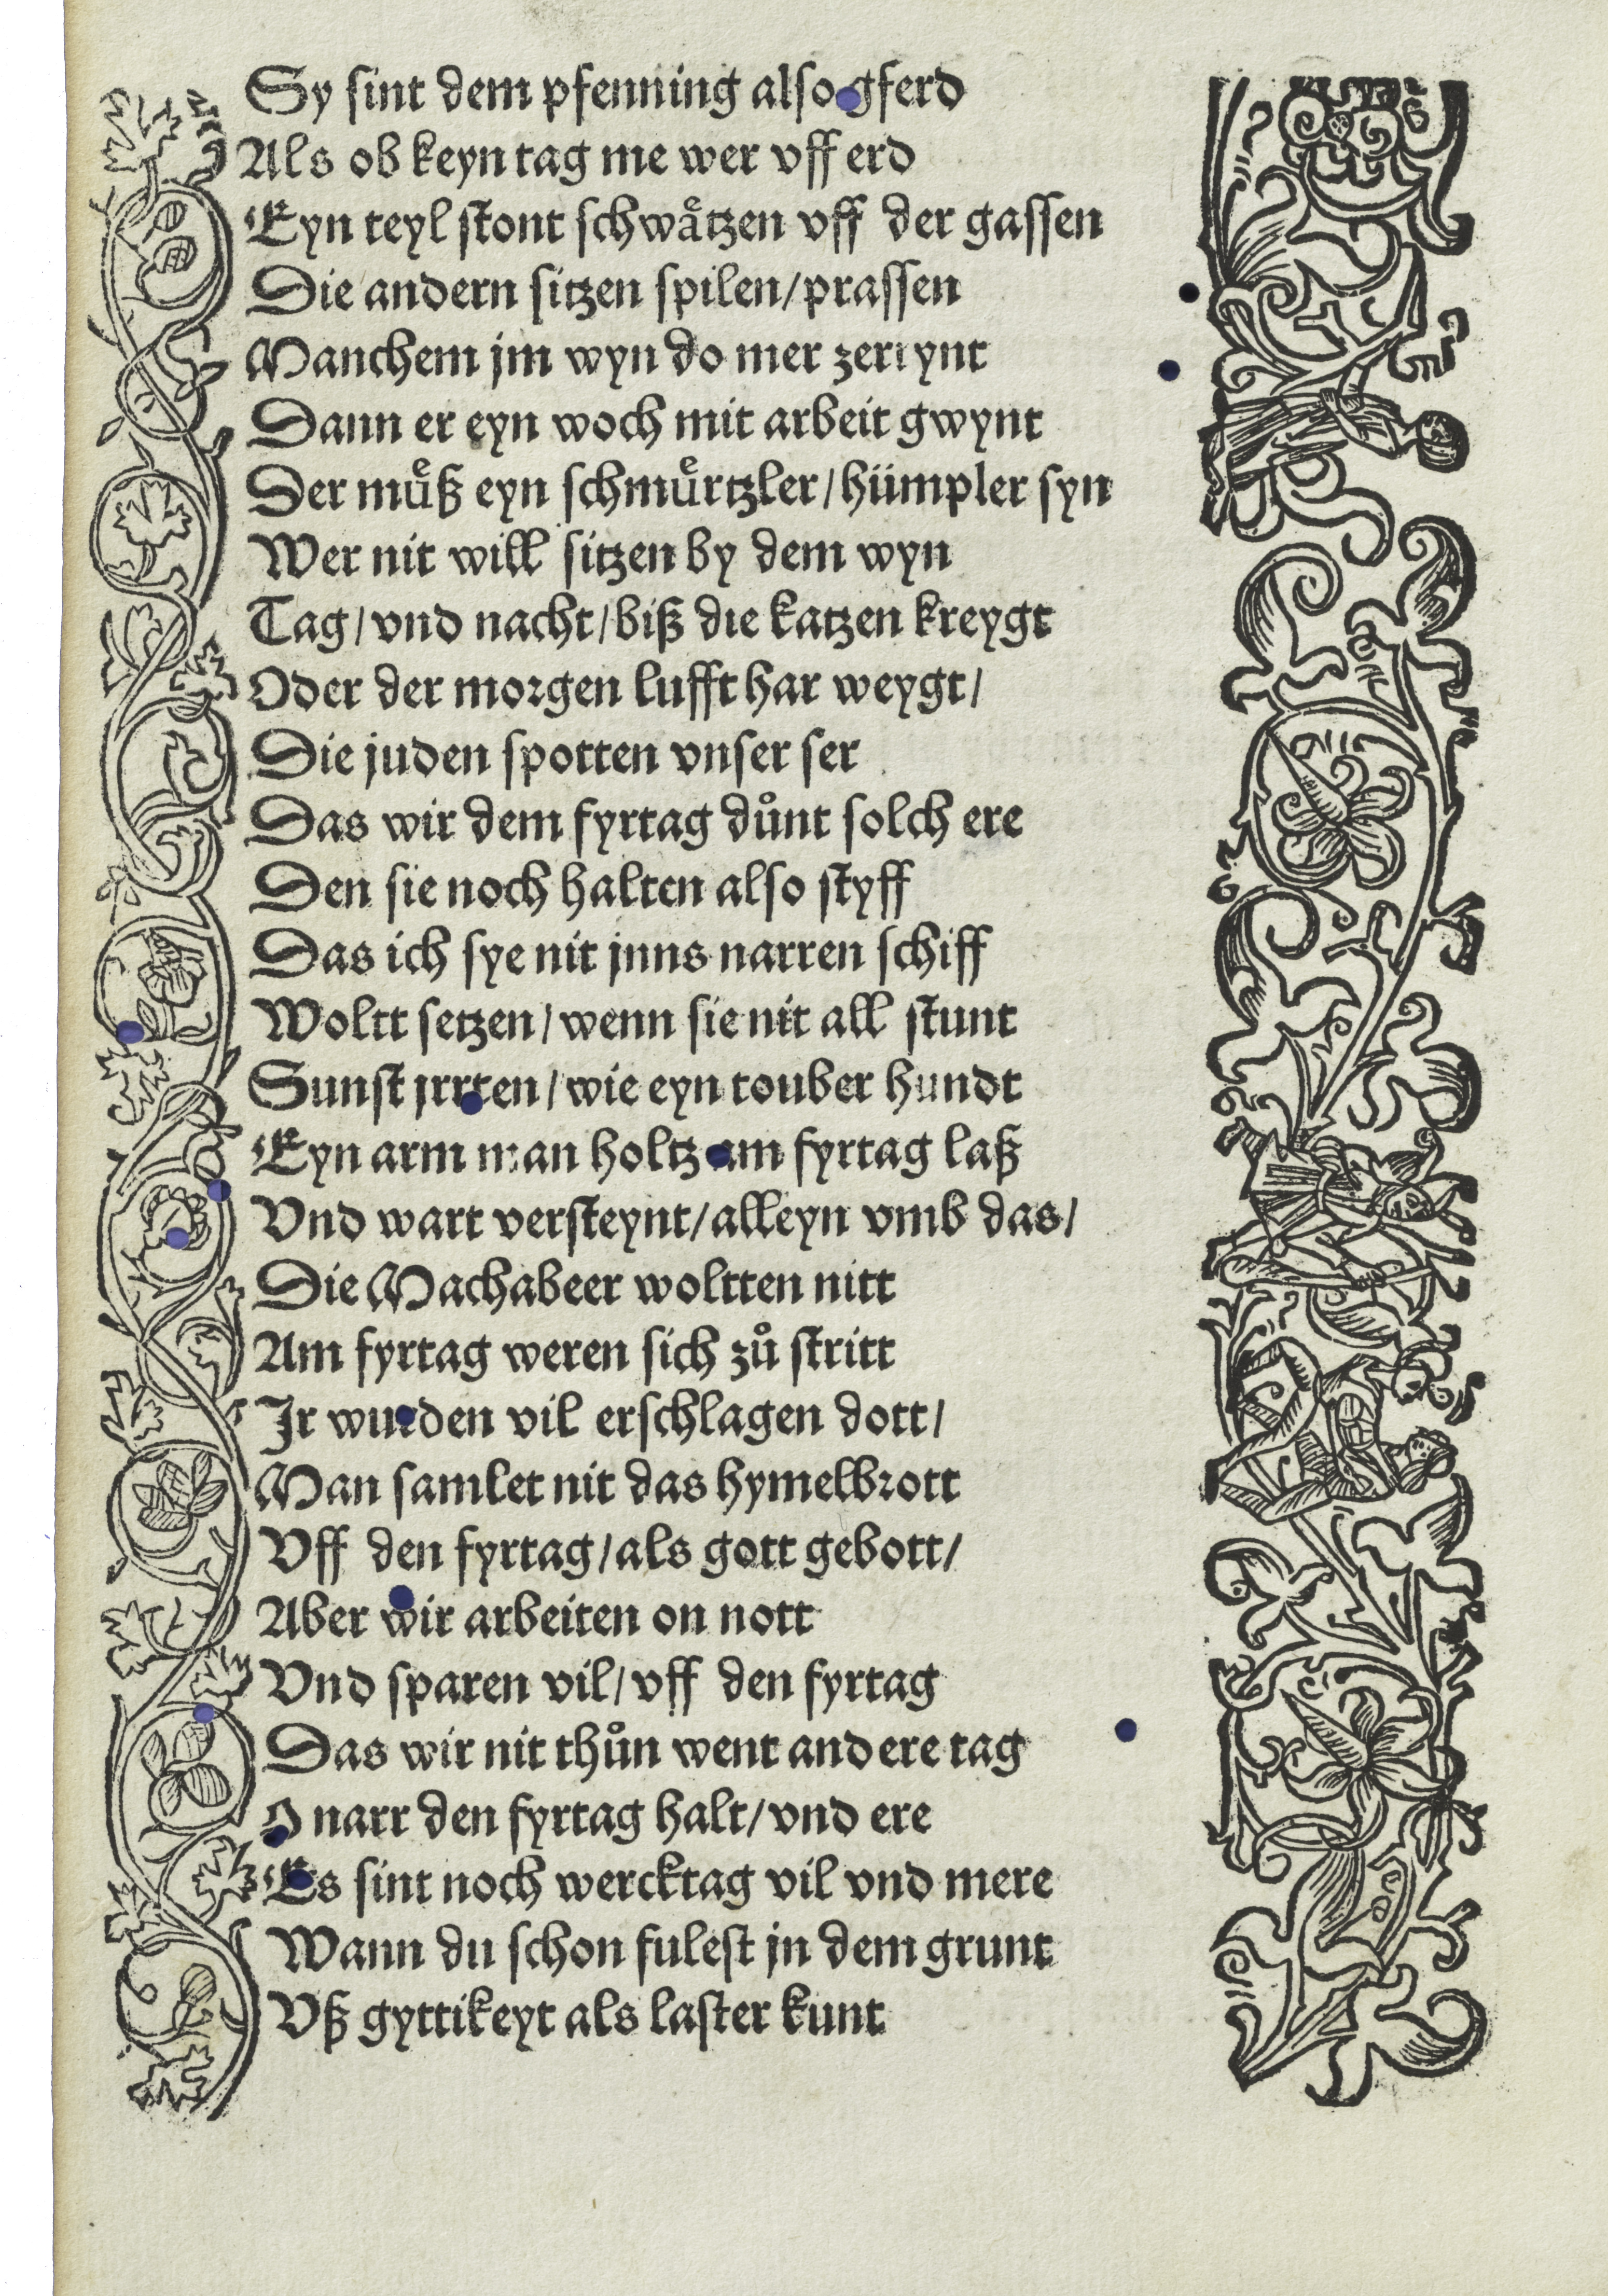 Sy sint dem pfenning also gferd
Als ob keyn tag me wer vff erd
Eyn teyl stont schwaͤtzen vff der gassen
Die andern sitzen spilen/prassen
Manchem jm wyn do mer zerrynt
Dann er eyn woch mit arbeit gwynt
Der muͤß eyn schmuͤrtzler/hümpler syn
Wer nit will sitzen by dem wyn
Tag/vnd nacht/biß die katzen kreygt
Oder der morgen lufft har weygt/
Die juden spotten vnser ser
Das wir dem fyrtag duͦnt solch ere
Den sie noch halten also styff
Das ich sye nit jnns narren schiff
Woltt setzen/wenn sie nit all stunt
Sunst jrrten/wie eyn touber hundt
Eyn arm man holtz am fyrtag laß
Vnd wart versteynt/alleyn vmb das/
Die Machabeer woltten nitt
Am fyrtag weren sich zuͦ stritt
Jr wurden vil erschlagen dott/
Man samlet nit das hymelbrott
Vff den fyrtag/als gott gebott/
Aber wir arbeiten on nott
Vnd sparen vil/vff den fyrtag
Das wir nit thuͦn went andere tag
O narr den fyrtag halt/vnd ere
Es sint noch wercktag vil vnd mere
Wann du schon fulest jn dem grunt
Vß gyttikeyt als laster kunt